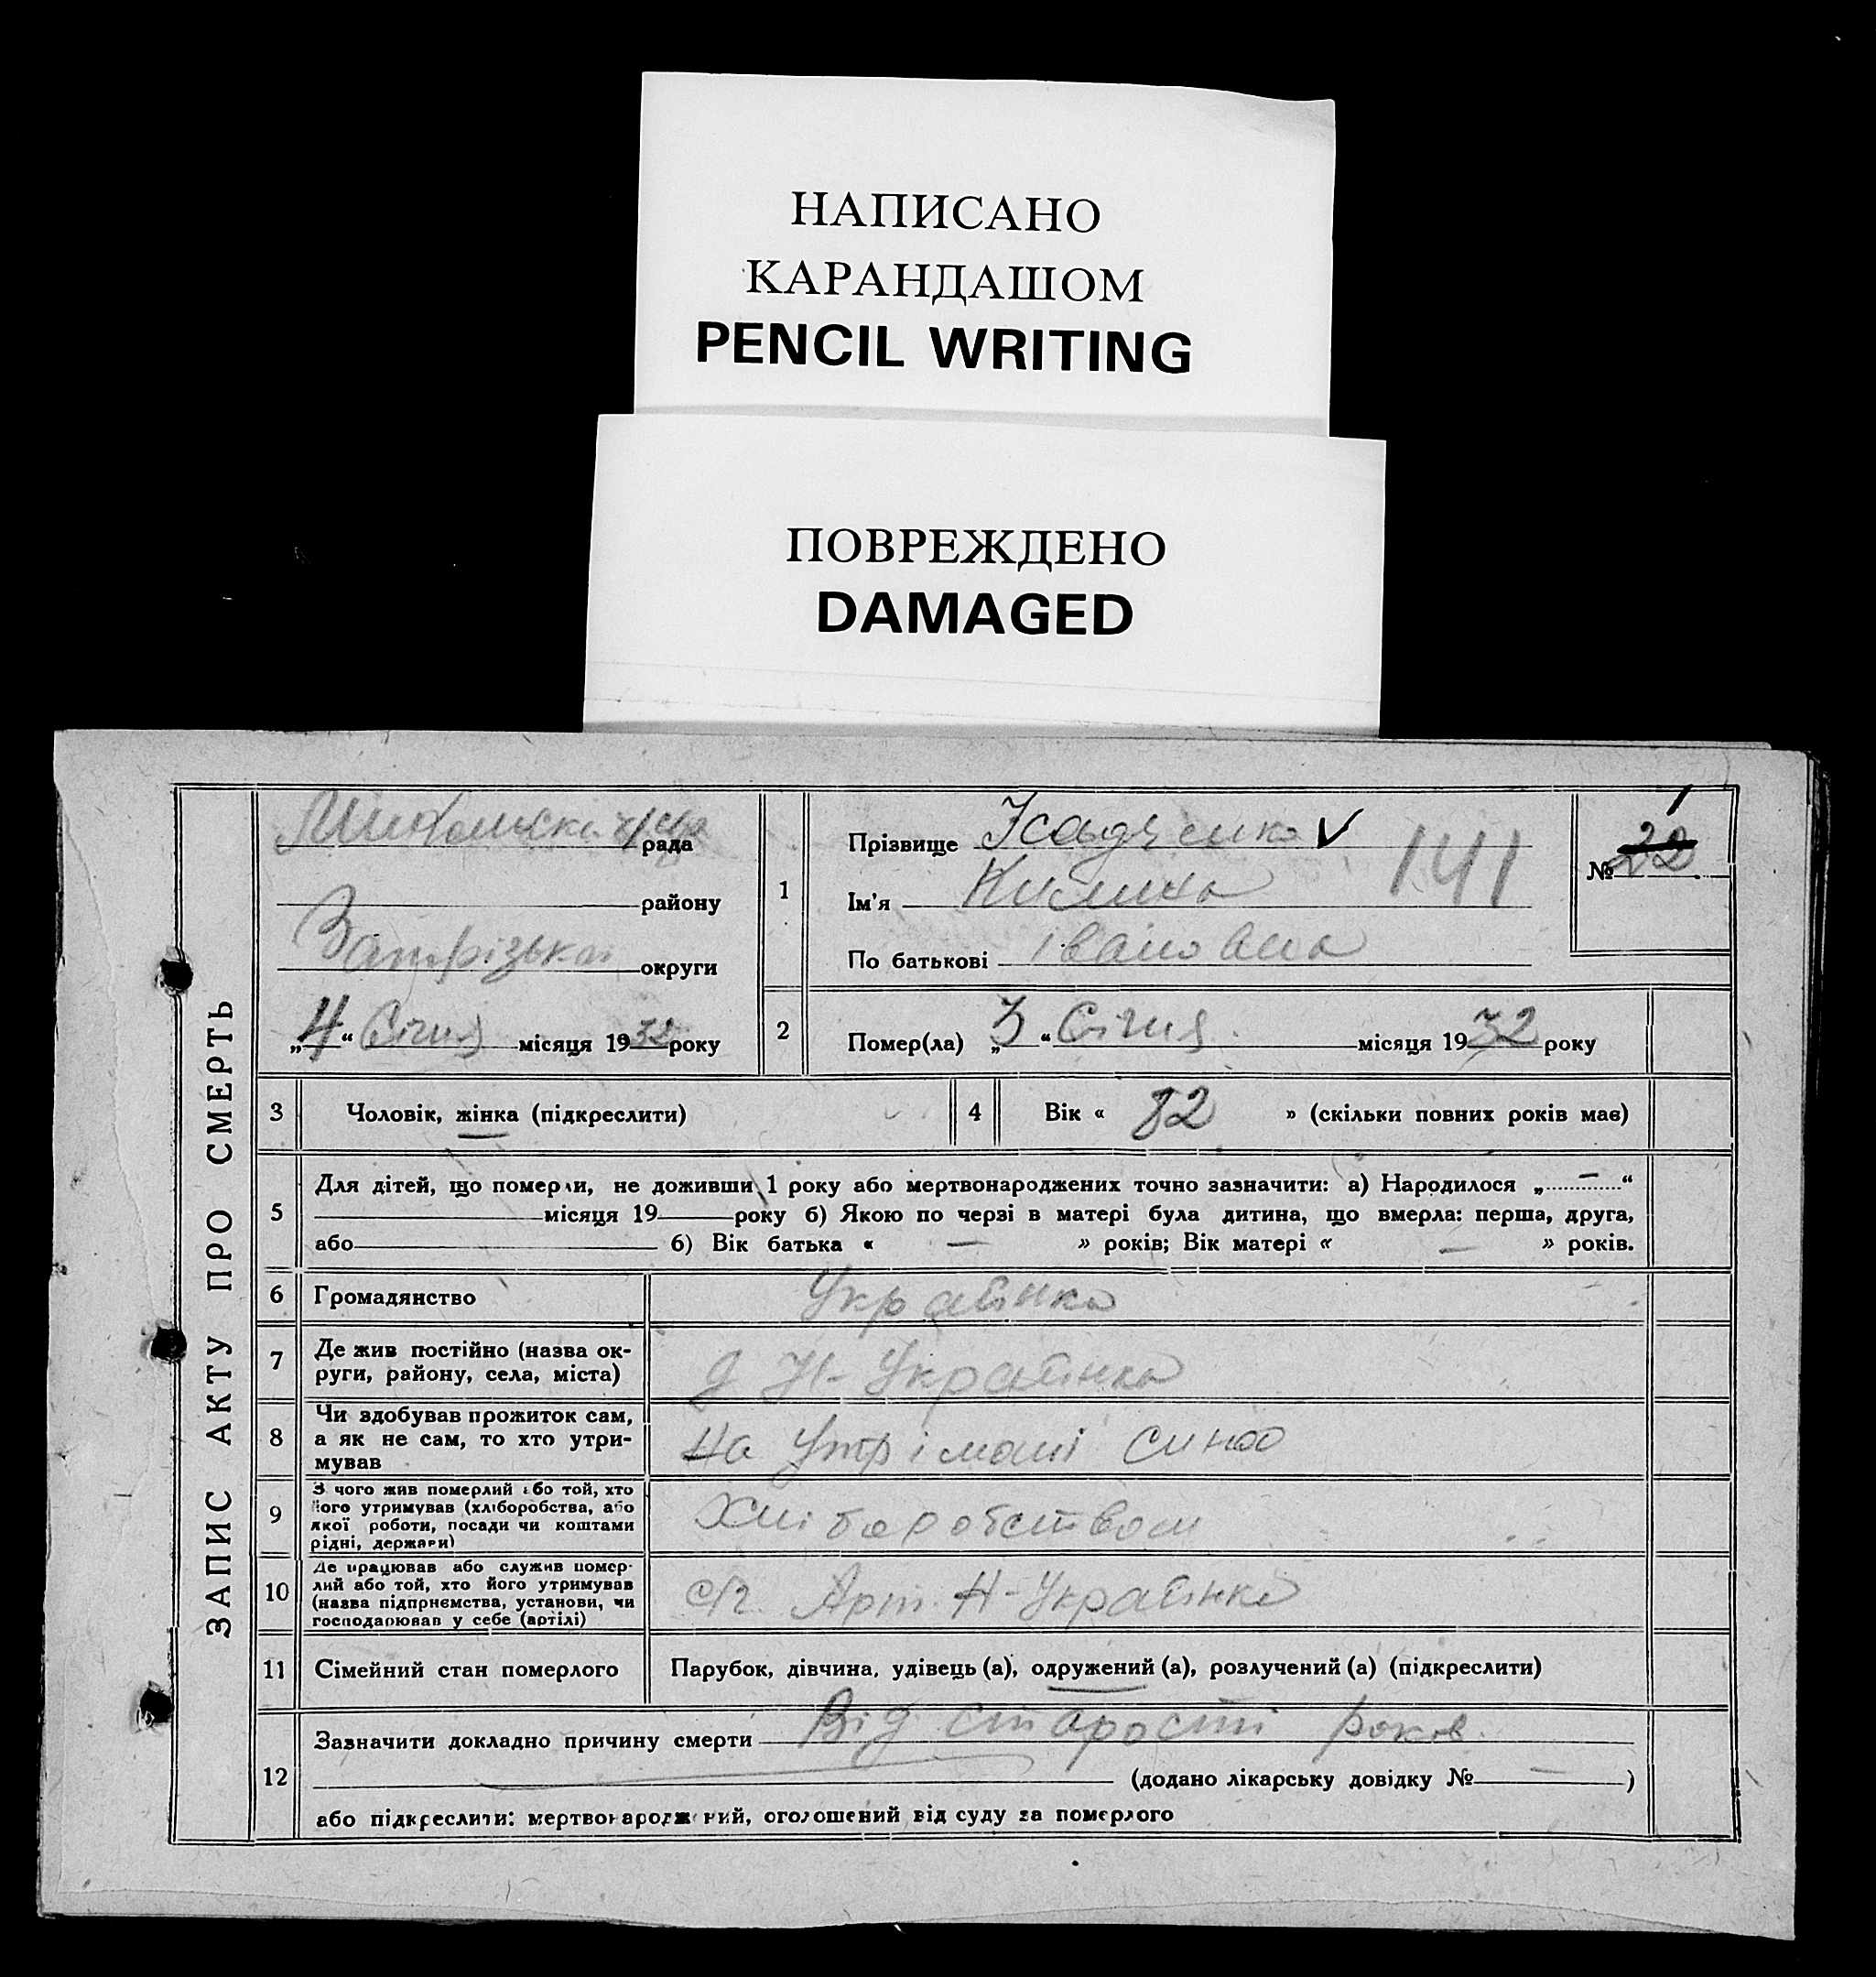 НАПИСАНО
КАРАНДАШОМ
PENCIL WRITING
ПОВРЕЖДЕНО
DAMAGED
ЗАПИС АКТУ ПРО СМЕРТЬ
рада
району
округи
„4“ Січня місяця 1932 року
1
Прізвище
141
Ім'я
По батькові Івановна
1
№ 22
2 Помер(ла) „3“ Січня місяця 1932 року
3 Чоловік, жінка (підкреслити)
4 Вік « 82 » (скільки повних років має)
5 Для дітей, що померли, не доживши 1 року або мертвонароджених точно зазначити: а) Народилося „—“
місяця 19 року б) Якою по черзі в матері була дитина, що вмерла: перша, друга,
або б) Вік батька « — » років; Вік матері « — » років.
6 Громадянство Українка
7 Де жив постійно (назва ок-
руги, району, села, міста)
Н-Українка
8 Чи здобував прожиток сам,
а як не сам, то хто утри-
мував
на утрімані сина
9 З чого жив померлий або той, хто
його утримував (хліборобства, або
якої роботи, посади чи коштами
рідні, держави)
Хліборобством
10 Де працював або служив помер-
лий або той, хто його утримував
(назва підприємства, установи, чи
господарював у себе (артілі)
с/г. Арт. Н-Українка
11 Сімейний стан померлого Парубок, дівчина, удівець (а), одружений (а), розлучений (а) (підкреслити)
12 Зазначити докладно причину смерти Від старости років
(додано лікарську довідку № — )
або підкреслити: мертвонароджений, оголошений від суду за померлого